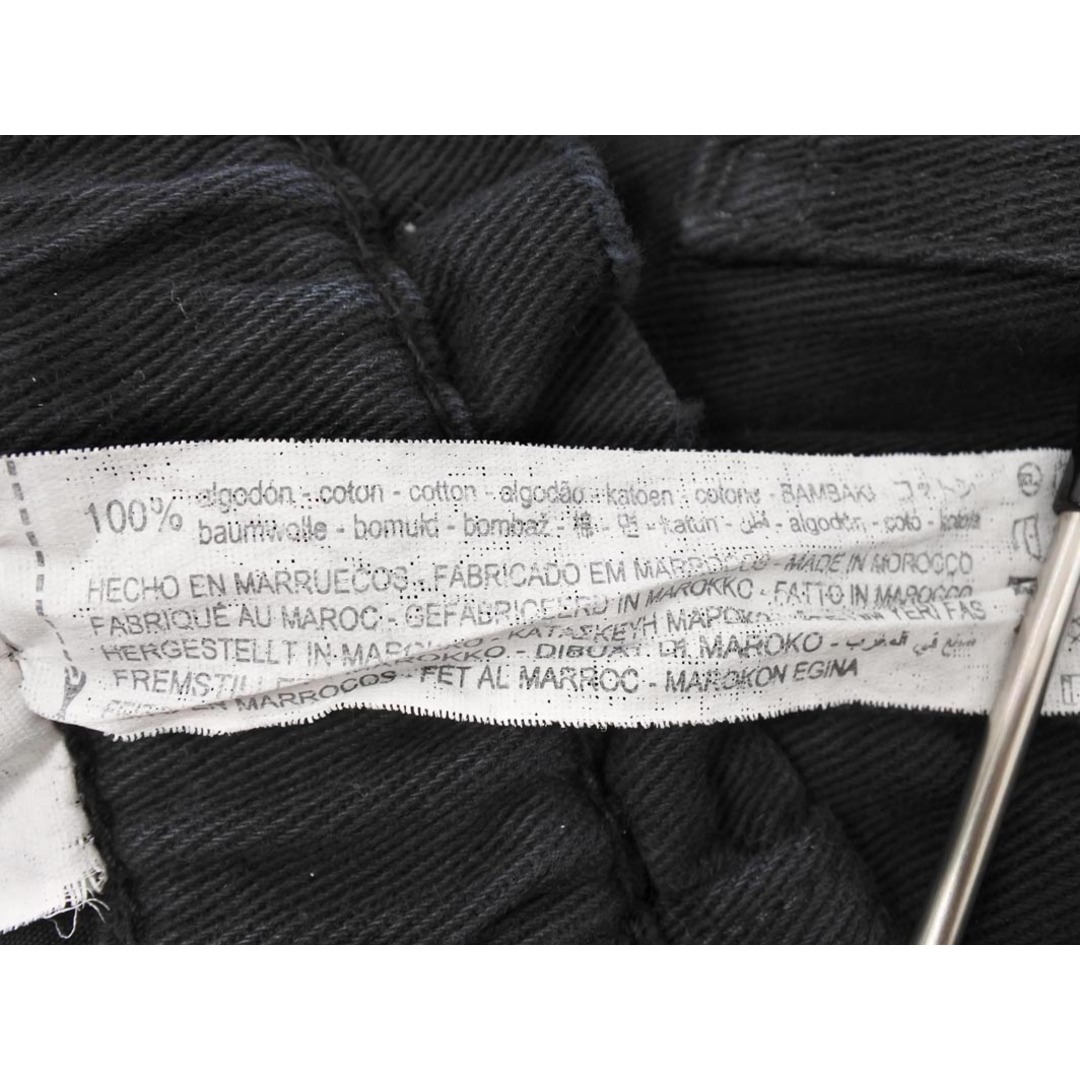 100% algodón - coton - cotton - algodão - katoen - cotone - BAMBAKI
baumwolle - bomuld - bombaž - 棉 - 면 - katun - قطن - algodón - cotó - kotoia
HECHO EN MARRUECOS - FABRICADO EM MARROCOS - MADE IN MOROCCO
FABRIQUÉ AU MAROC - GEFABRICEERD IN MAROKKO - FATTO IN MAROCCO
HERGESTELLT IN MAROKKO - KATAΣKEYH MAPOKO YERI FAS
MAROKKO - DIBUAT DI MAROKO - صنع في المغرب
EN MARROCOS - FET AL MARROC - MAROKON EGINA